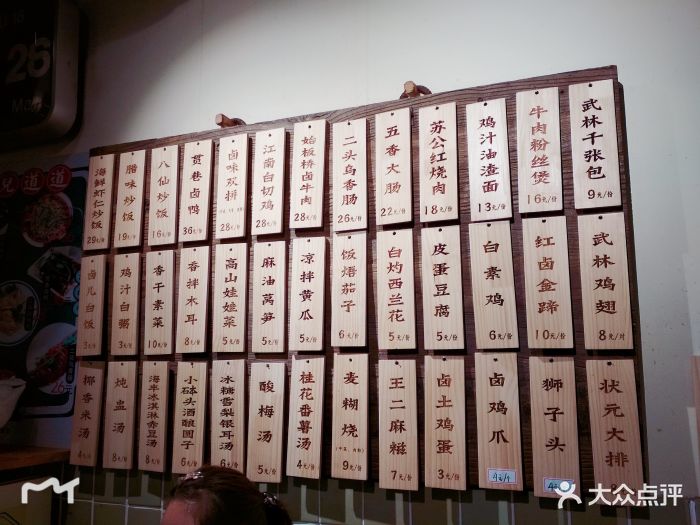 26
兒道道
武林千张包 9元/份
牛肉粉丝煲 16元/份
鸡汁油渣面 13元/份
苏公红烧肉 18元/份
五香大肠 22元/份
二头乌香肠 26元/份
始板桥卤牛肉 28元/份
江南白切鸡 28元/份
卤味双拼 28元/份
贯巷卤鸭 36元/份
八仙炒饭 16元/份
腊味炒饭 19元/份
海鲜虾仁炒饭 29元/份
武林鸡翅 8元/对
红卤金蹄 10元/份
白素鸡 6元/份
皮蛋豆腐 5元/份
白灼西兰花 5元/份
饭焐茄子 6元/份
凉拌黄瓜 5元/份
麻油莴笋 5元/份
高山娃娃菜 5元/份
香拌木耳 8元/份
香干素菜 10元/份
鸡汁白粥 3元/份
卤儿白饭 3元/份
状元大排
狮子头
卤鸡爪
卤土鸡蛋 3元/份
王二麻糍 7元/份
麦糊烧 9元/份
桂花番薯汤 4元/份
酸梅汤 5元/份
冰糖雪梨银耳汤 6元/份
小砵头酒酿圆子 6元/份
海半冰淇淋赤豆汤 8元/份
炖盅汤 8元/份
椰香米汤 4元/份
大众点评